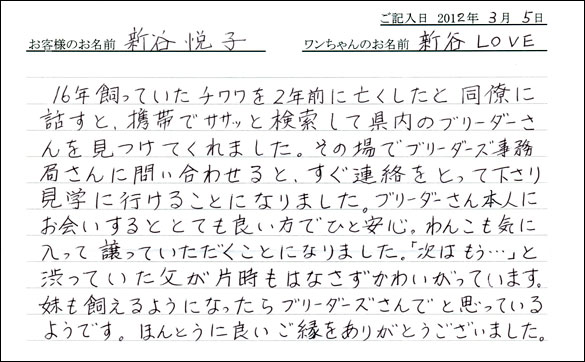 ご記入日 2012年 3月 5日
お客様のお名前 新谷 悦子 ワンちゃんのお名前 新谷 LOVE
16年飼っていたチワワを2年前に亡くしたと同僚に
話すと、携帯でササッと検索して県内のブリーダーさ
んを見つけてくれました。その場でブリーダーズ事務
局さんに問い合わせると、すぐ連絡をとって下さり
見学に行けることになりました。ブリーダーさん本人に
お会いするととても良い方でひと安心。わんこも気に
入って譲っていただくことになりました。「次はもう…」と
渋っていた父が片時もはなさずかわいがっています。
妹も飼えるようになったらブリーダーズさんでと思っている
ようです。ほんとうに良いご縁をありがとうございました。